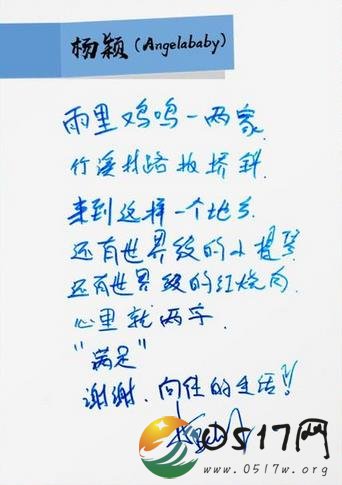 杨颖(Angelababy)
雨里鸡鸣一两家
竹溪村路板桥斜.
来到这样一个地方
还有世界级的小提琴
还有世界级的红烧肉.
心里就两字.
"满足"
谢谢.向往的生活!!
0517网
www.0517w.org